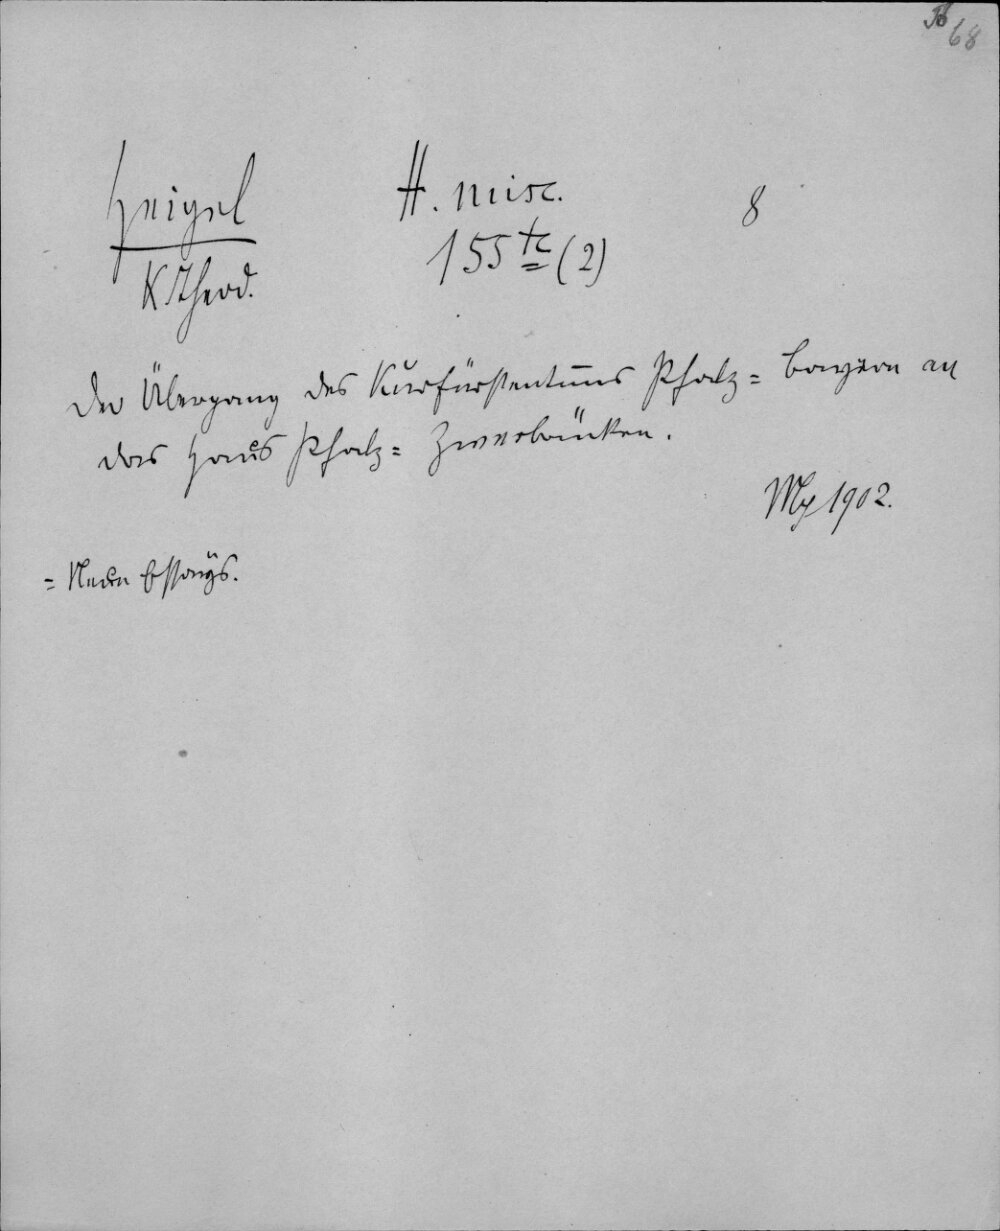 68
Heigel H. misc. 8
K Theod. 155 tc (2)
Der Übergang des Kurfürstentums Pfalz= Bayern an
das Haus Pfalz= Zweibrücken.
1902.
= Neue Essays.